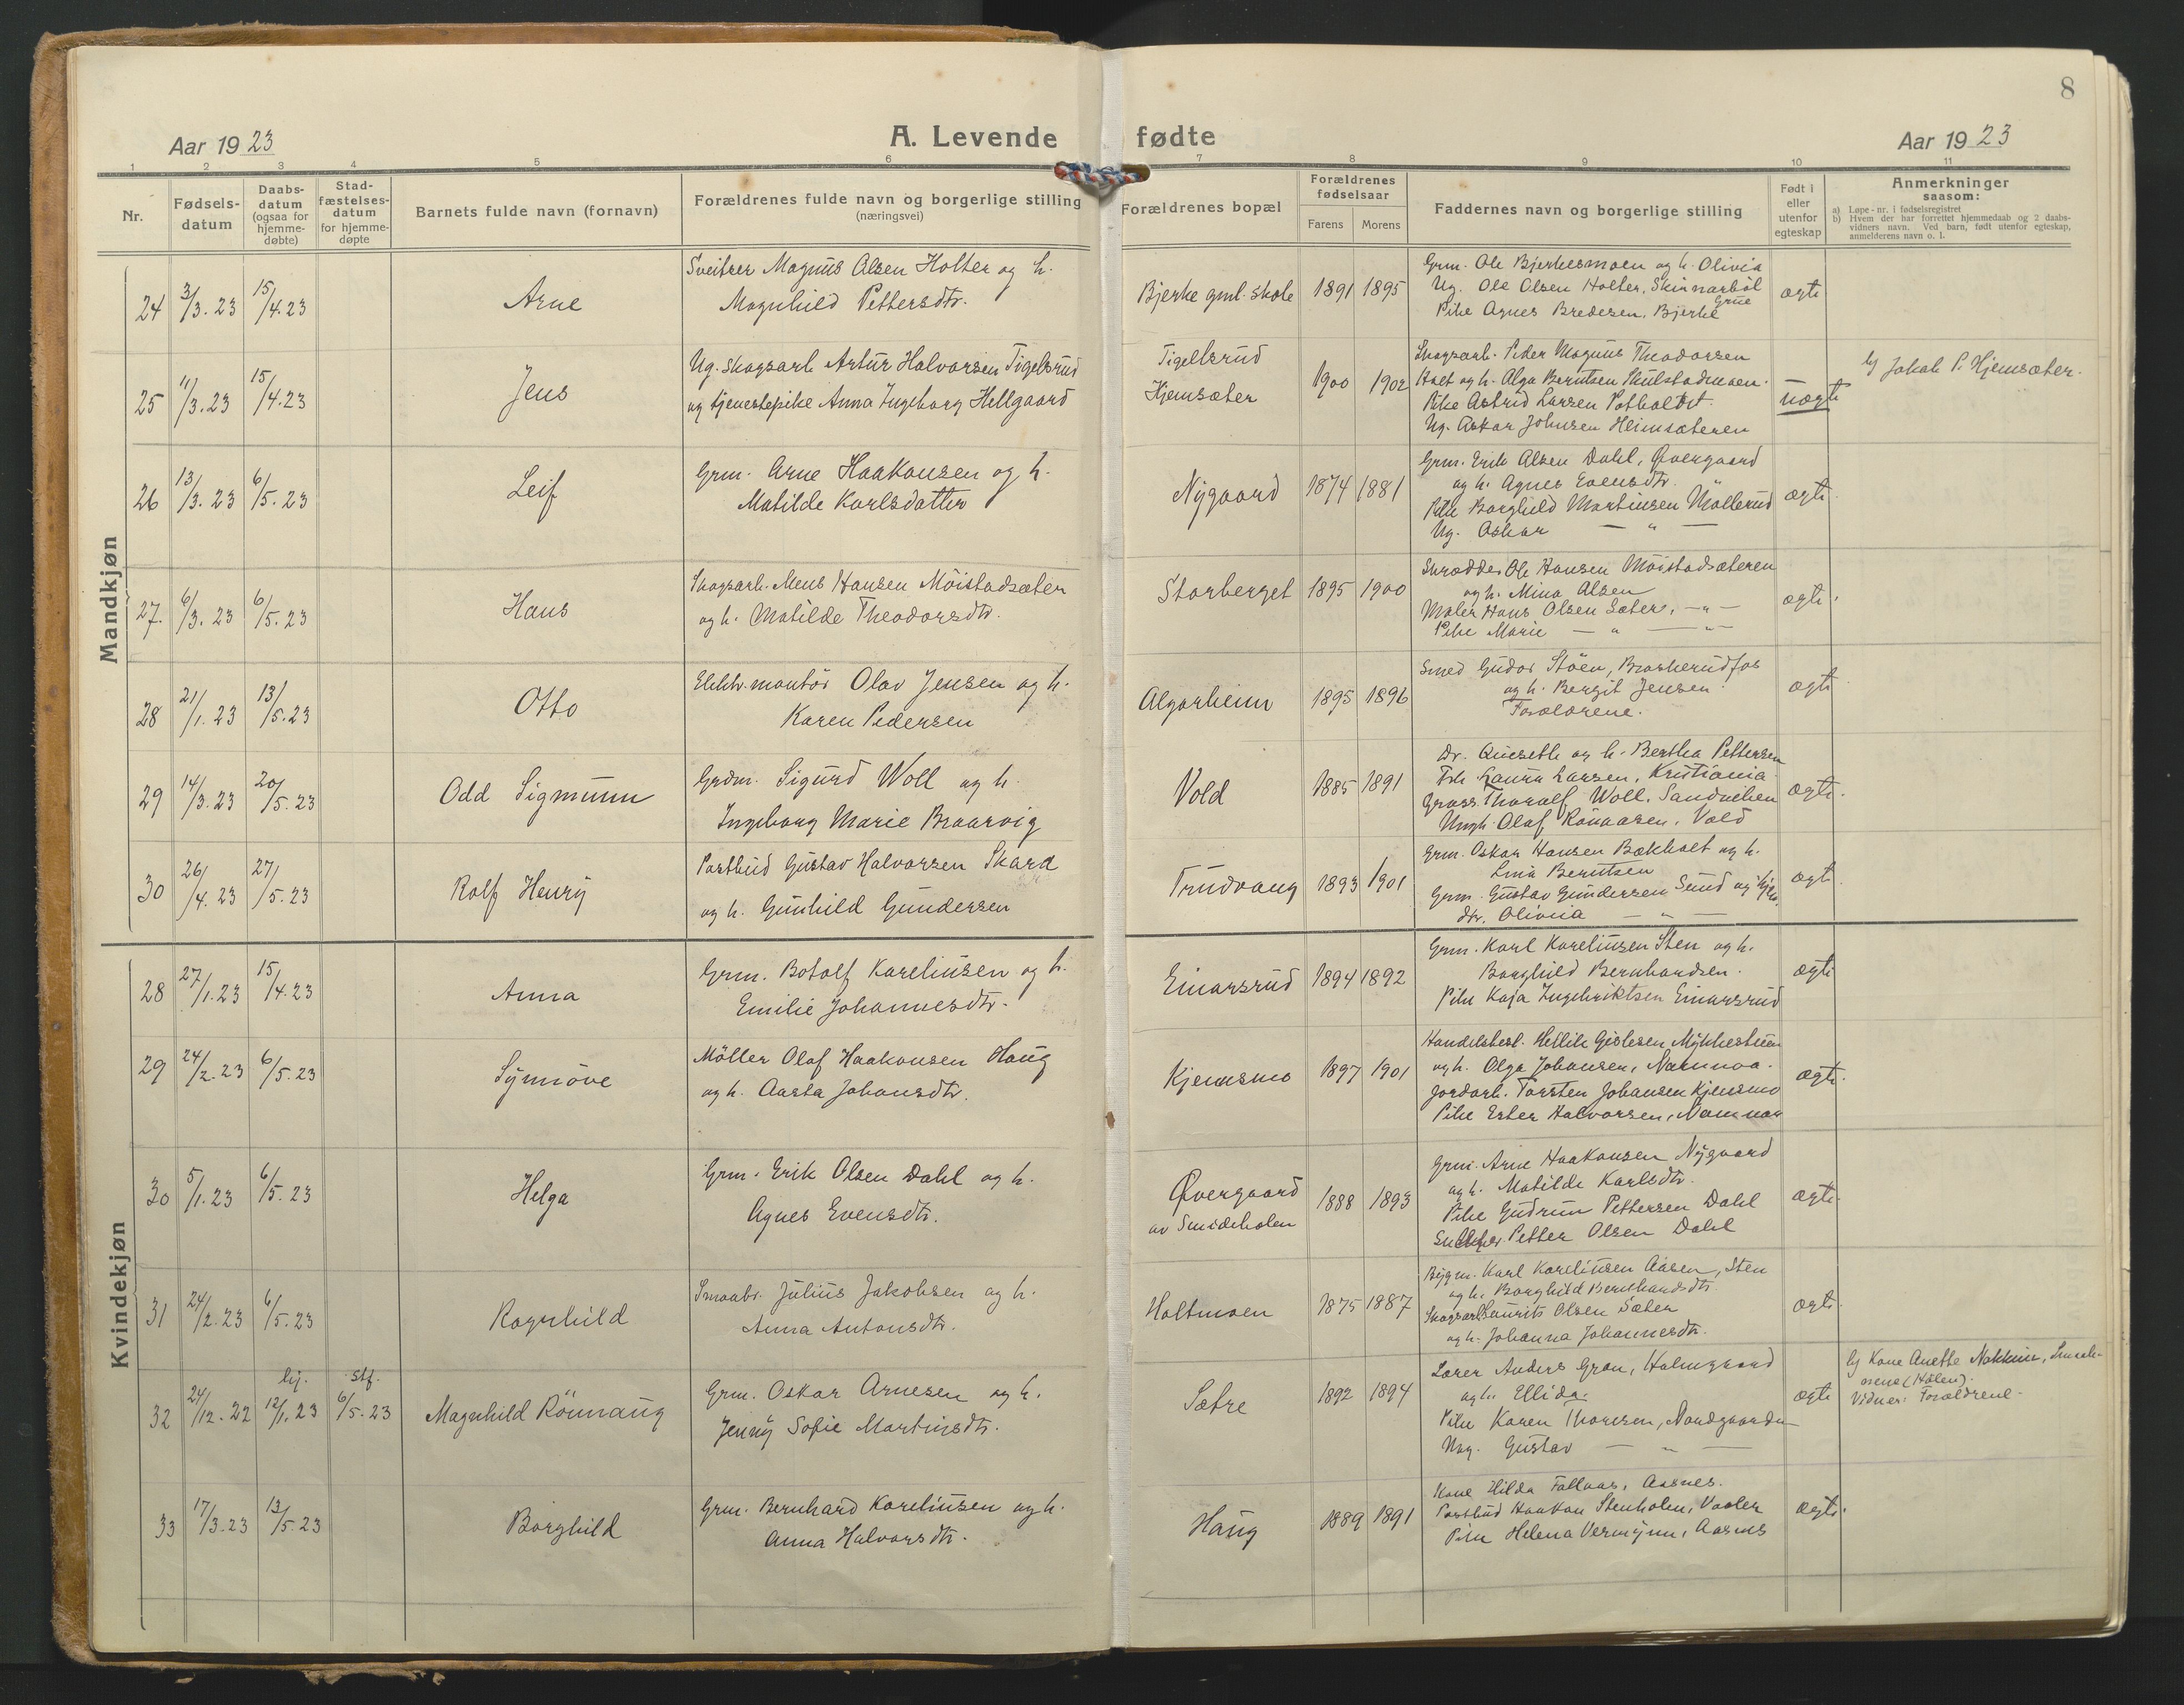 8
Aar 1923 A. Levende fødte Aar 1923
1 2 3 4 5 6 7 8 9 10 11
Nr.
Fødsels-
datum
Daabs-
datum
(ogsaa for
hjemme-
døbte)
Stad-
fæstelses-
datum
for hjemme-
døpte
Barnets fulde navn (fornavn)
Forældrenes fulde navn og borgerlige stilling
(næringsvei)
Forældrenes bopæl
Forældrenes
fødselsaar
Farens Morens
Faddernes navn og borgerlige stilling
Født i
eller
utenfor
egteskap
Anmerkninger
saasom:
a) Løpe-nr. i fødselsregistret
b) Hvem der har forrettet hjemmedaab og 2 daabs-
vidners navn. Ved barn, født utenfor egteskap,
anmelderens navn o. l.
Mandkjøn
24 3/3.23 15/4.23 Arne
Sveitser Magnus Olsen Holter og h.
Magnhild Pettersdtr.
Bjerke gml. skole 1891 1895
Grm. Ole Bjerkesmoen og h. Olivia
Ug. Ole Olsen Holter, Skinnarbøl
Grue
Pike Agnes Bredesen, Bjerke
ægte
25 11/3.23 15/4.23 Jens
Ug. skogsarb. Artur Halvorsen Tigelsrud
og tjenestepike Anna Ingeborg Hellgaard
Tigelsrud
Hjemsæter
1900 1902
Skogsarb. Peder Magnus Theodorsen
Holt og h. Olga Berntsen Skulstadmoen.
Pike Astrid Larsen Potholtet.
Ug. Oskar Johnsen Heimsæteren
uægte
b) Jakob P. Hjemsæter.
26 13/3.23 6/5.23 Leif
Grm. Arne Haakonsen og h.
Matilde Karlsdatter
Nygaard 1874 1881
Grm. Erik Olsen Dahl, Øvergaard
og h. Agnes Evensdtr.
Pike Borghild Martinsen Møllerud
Ug. Oskar — " —
ægte
27. 6/3.23 6/5.23 Hans
Skogsarb. Mens Hansen Möistadsæter
og h. Matilde Theodorsdtr.
Storberget 1895 1900
Skrædder Ole Hansen Möistadsæteren
og h. Mina Olsen
Maler Hans Olsen Sæter, — " —
Pike Marie — " — — " —
ægte
28 21/1.23 13/5.23 Otto
Elektr. montör Olav Jensen og h.
Karen Pedersen
Algarheim 1895 1896
Smed Gudor Støen, Braskerudfos
og h. Bergit Jensen.
Forældrene.
ægte
29 14/3.23 20/5.23 Odd Sigmunn
Grdm. Sigurd Woll og h.
Ingeborg Marie Braarvig
Vold 1885 1891
Dr. Queseth og h. Bertha Pettersen
Frk. Laura Larsen, Kristiania
Gross. Thoralf Woll, Sandviken
Ungk. Olaf Rönaasen, Vold
ægte.
30 26/4.23 27/5.23 Rolf Henry
Postbud Gustav Halvorsen Skard
og h. Gunhild Gundersen
Trudvang 1893 1901
Grm. Oskar Hansen Bækholt og h.
Lina Berntsen
Grm. Gustav Gundersen Sund og hjv.
dtr. Olivia — " —
ægte
Kvindekjøn
28 27/1.23 15/4.23 Anna
Grm. Botolf Kareliusen og h.
Emilie Johannesdtr.
Einarsrud 1894 1892
Grm. Karl Kareliusen Sten og h.
Borghild Bernhardsen.
Pike Kaja Ingebriktsen Einarsrud
ægte
29 24/2.23 6/5.23 Synnöve
Möller Olaf Haakonsen Haug
og h. Aasta Johansdtr.
Kjemsmo 1897 1901
Handelsbest. Hellik Gislesen Mykkestuen
og h. Olga Johansen, Namnoa.
Jordarb. Torsten Johansen Kjensmo
Pike Ester Halvorsen, Namnaa
ægte.
30 5/1.23 6/5.23 Helga
Grm. Erik Olsen Dahl og h.
Agnes Evensdtr.
Øvergaard
av Smideholen
1888 1893
Grm. Arne Haakonsen Nygaard
og h. Matilde Karlsdtr.
Pike Gudrun Pettersen Dahl
Petter Olsen Dahl
ægte.
31 24/2.23 6/5.23 Ragnhild
Smaabr. Julius Jakobsen og h.
Anna Antonsdtr.
Holtmoen 1875 1887
Bygm. Karl Kareliusen Aasen, Sten
og h. Borghild Bernhardsdtr.
Skogsarb. Laurits Olsen Sæter
og h. Johanna Johannesdtr.
ægte.
32 24/12.22 hj. 12/1.23 stf. 6/5.23 Magnhild Rönnaug
Grm. Oskar Arnesen og h.
Jenny Sofie Martinsdtr.
Sætre 1892 1894
Lærer Anders Grøn, Holmgaard
og h. Ellida.
Pike Karen Thoresen, Nordgaarden
Ung. Gustav — " —
ægte
b) Kone Anette Nökkum,
(Hölen).
Vidner: Forældrene.
33 17/3.23 13/5.23 Borghild
Grm. Bernhard Kareliusen og h.
Anna Halvorsdtr.
Haug 1889 1891
Kone Hilda Follaas, Aasnes.
Postbud Haakon Stenholen, Vaaler
Pike Helena Vermunn, Aasnes
ægte.